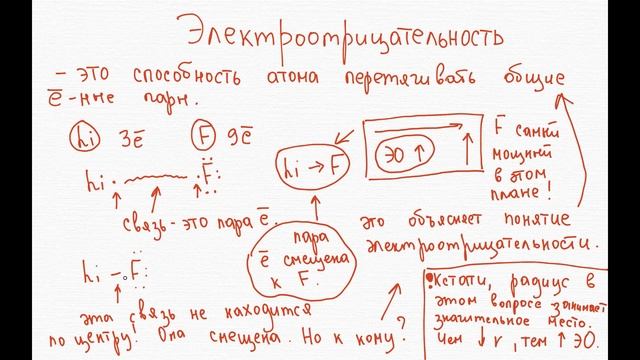 Электроотрицательность
- это способность атома перетягивать общие
ē-нные пары.
Li 3ē F 9ē
Li · ·F:
связь - это пара ē.
Li → F
ЭО ↑ ↑
F самый
мощный
в этом
плане!
пара
ē смещена
к F.
это объясняет понятие
электроотрицательности.
Li - F:
эта связь не находится
по центру! Она смещена. Но к кому?
Кстати, радиус в
этом вопросе занимает
значительное место.
Чем ↓ r, тем ↑ ЭО.